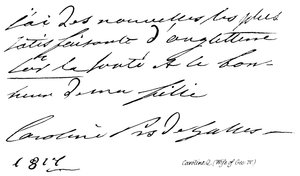 j'ai des nouvelles les plus
satisfaisante d'angletterre
sur la santé et le bon-
heur de ma fille
Caroline Pss de Galles
1817
Caroline Q. (Wife of Geo IV)